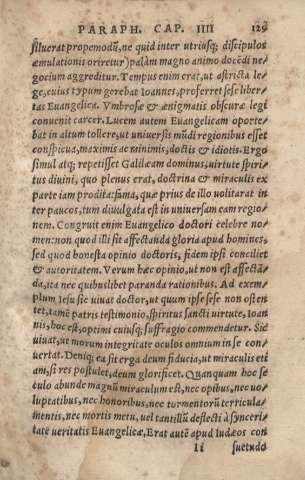 PARAPH. CAP. IIII 129
siluerat propemodũ, ne quid inter utriusq; discipulos
æmulationis oriretur) palàm magno animo docẽdi ne-
gocium aggreditur. Tempus enim erat, ut astricta le-
ge, cuius typum gerebat Ioannes, proferret sese liber-
tas Euangelica. Vmbrosæ & ænigmatis obscuræ legi
conuenit carcer. Lucem autem Euangelicam oporte-
bat in altum tollere, ut uniuersis mũdi regionibus esset
conspicua, maximis ac minimis, doctis & idiotis. Ergo
simul atq; repetisset Galilæam dominus, uirtute spiri-
tus diuini, quo plenus erat, doctrina & miraculis ex
parte iam prodita: fama, quæ prius de illo uolitarat in
ter paucos, tum diuulgata est in uniuersam eam regio-
nem. Congruit enim Euangelico doctori celebre no-
men: non quod illi sit affectanda gloria apud homines,
sed quod honesta opinio doctoris, fidem ipsi conciliet
& autoritatem. Verum hæc opinio, ut non est affectã-
da, ita nec quibuslibet paranda rationibus. Ad exem-
plum Iesu sic uiuat doctor, ut quum ipse sese non osten
tet, tamẽ patris testimonio, spiritus sancti uirtute, Ioan
nis, hoc est, optimi cuiusq; suffragio commendetur. Sic
uiuat, ut morum integritate oculos omnium in se con-
uertat. Deniq; ea sit erga deum fiducia, ut miraculis eti
am, si res postulet, deum glorificet. Quanquam hoc se
culo abunde magnũ miraculum est, nec opibus, nec uo-
luptatibus, nec honoribus, nec tormentorũ terricula-
mentis, nec mortis metu, uel tantillũ deflecti à synceri-
tate ueritatis Euangelicæ. Erat autẽ apud Iudæos con
Ii suetudo